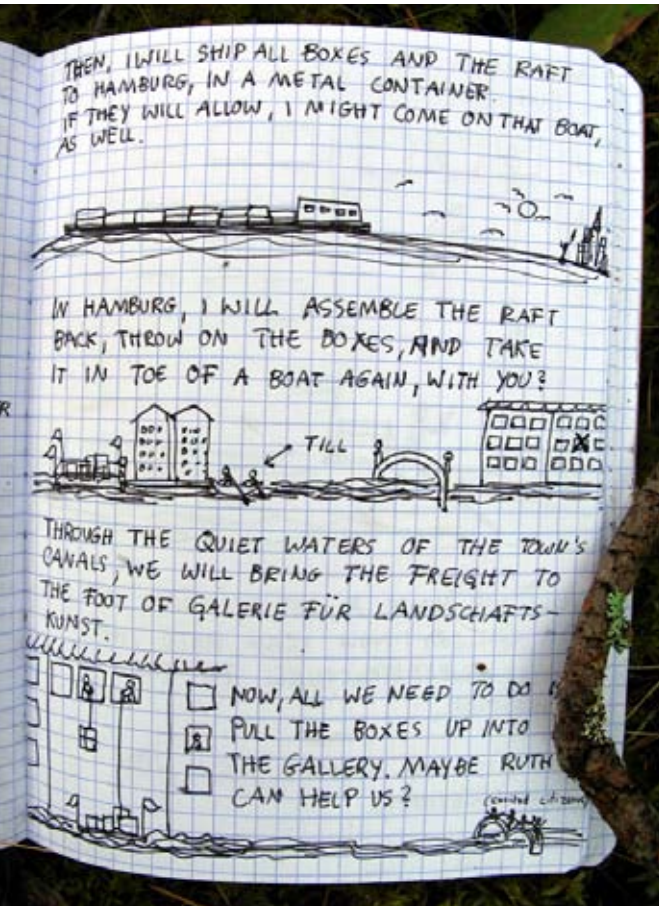 THEN, I WILL SHIP ALL BOXES AND THE RAFT
TO HAMBURG, IN A METAL CONTAINER.
IF THEY WILL ALLOW, I MIGHT COME ON THAT BOAT,
AS WELL.
IN HAMBURG, I WILL ASSEMBLE THE RAFT
BACK, THROW ON THE BOXES, AND TAKE
IT IN TOE OF A BOAT AGAIN, WITH YOU?
R
TILL
THROUGH THE QUIET WATERS OF THE TOWN'S
CANALS, WE WILL BRING THE FREIGHT TO
THE FOOT OF GALERIE FÜR LANDSCHAFTS-
KUNST.
NOW, ALL WE NEED TO DO
PULL THE BOXES UP INTO
THE GALLERY. MAYBE RUTH
CAN HELP US?
citizens)